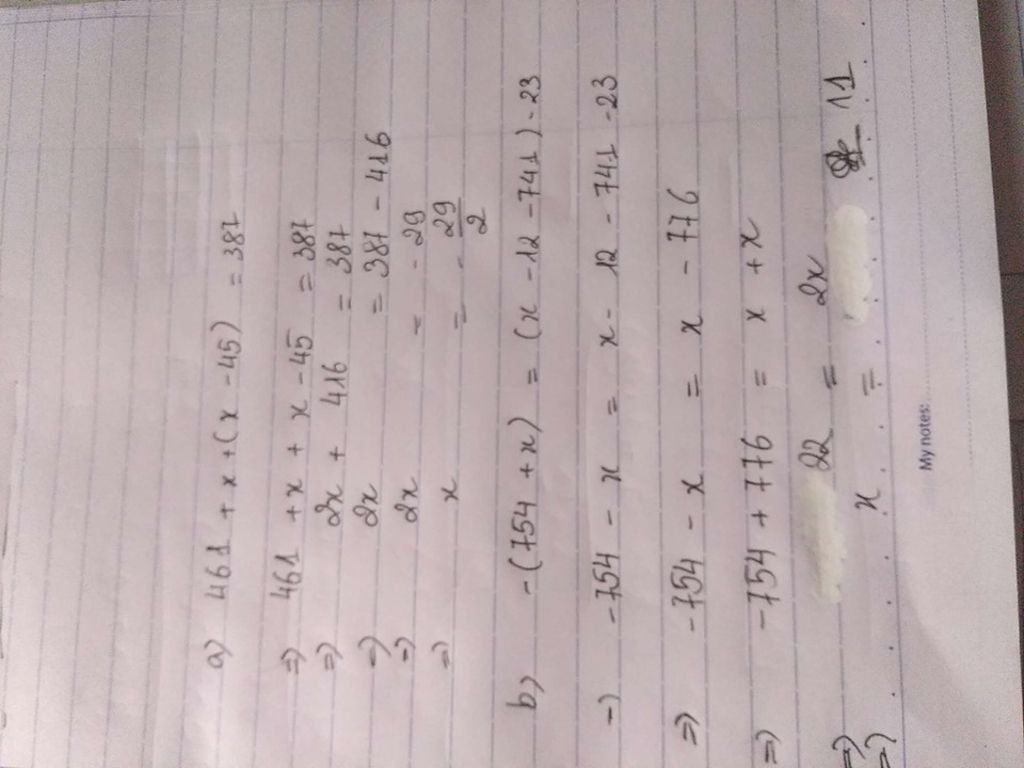 a) 461 + x + (x - 45) = 387
=) 461 + x + x - 45 = 387
=) 2x + 416 = 387
=) 2x = 387 - 416
=) 2x = - 29
=) x = - 29/2
b) - (754 + x) = (x - 12 - 741) - 23
=) - 754 - x = x - 12 - 741 - 23
=) - 754 - x = x - 776
=) - 754 + 776 = x + x
=) 22 = 2x
=) x = 11
My notes: